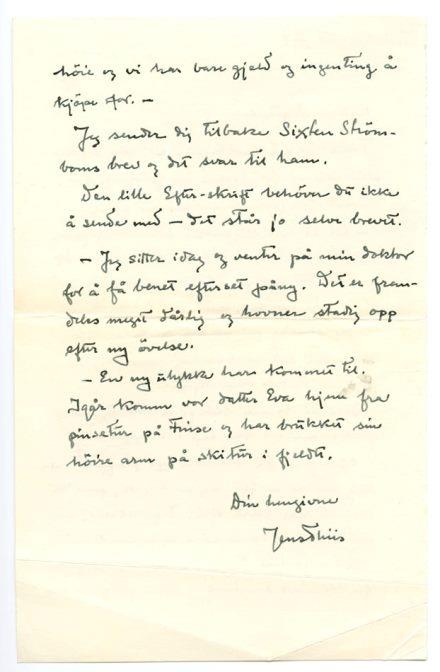 höie og vi har bare gjeld og ingenting å
kjöpe for. —
Jeg sender dig tilbake Sixten Ström-
boms brev og dit svar til ham.
Den lille Efter-skrift behöver du ikke
å sende med — det står jo selve brevet.
— Jeg sitter idag og venter på min doktor
for å få benet efterset påny. Det er frem-
deles meget dårlig og hovner stadig opp
efter ny övelse.
— En ny ulykke har kommet til.
Igår komm vor datter Eva hjem fra
pinsetur på Finse og har brukket sin
höire arm på skitur i fjeldet.
Din hengivne
Jens Thiis